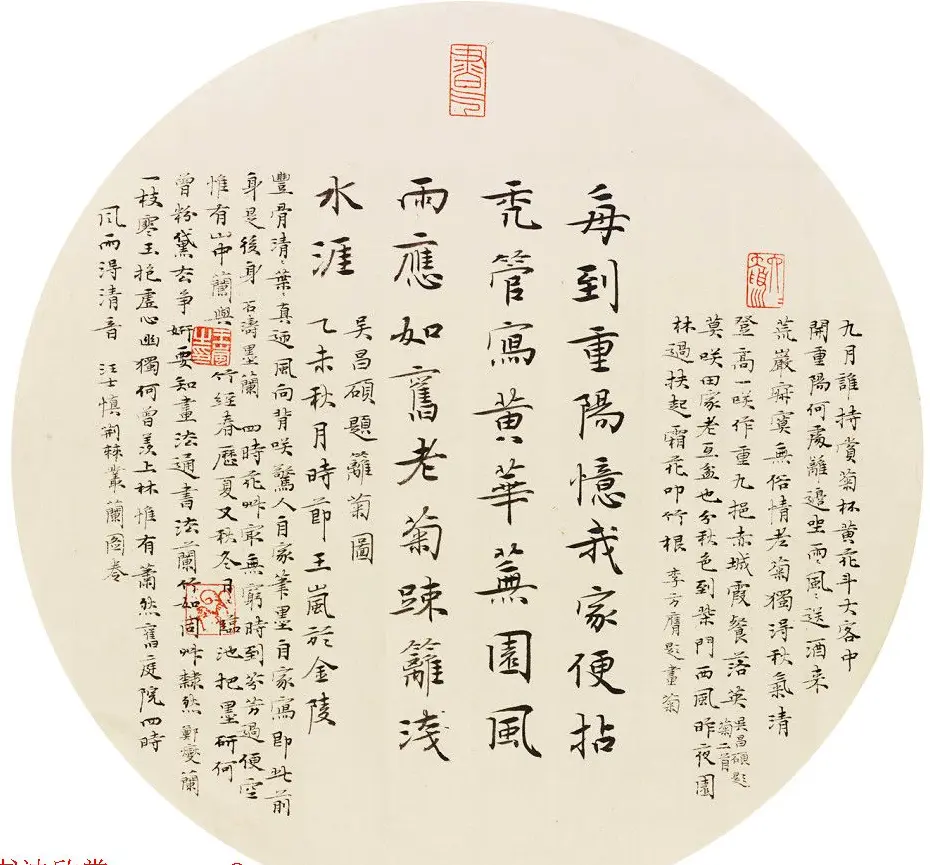 九月誰持賞菊杯黄花斗大客中
開重陽何處離邊坐雨風〻送酒来
荒巖寂寞無俗情老菊獨得秋氣清
登高一咲作重九挹赤城霞餐落英吳昌碩題菊二首
莫咲田家老瓦盆也分秋色到柴門西風昨夜園
林過扶起霜花叩竹根 李方膺題畫菊
每到重陽憶我家便拈
禿管寫黄華蕪園風
雨應如舊老菊疎籬淺
水涯
吴昌碩題籬菊圖
乙未秋月時節王嵐於金陵
豐骨清〻葉〻真迎風向背咲驚人自家筆墨自家寫即此前
身是後身 石濤墨蘭 四時花草最無窮時到芬芳過便空
惟有山中蘭與竹經春歷夏又秋冬 日〻臨池把墨研何
曾粉黛去争妍要知畫法通書法蘭竹如同草隸然 鄭燮蘭
一枝寒玉抱虛心幽獨何曾羨上林惟有蕭然舊庭院四時
風雨得清音 汪士慎荊棘叢蘭圖卷